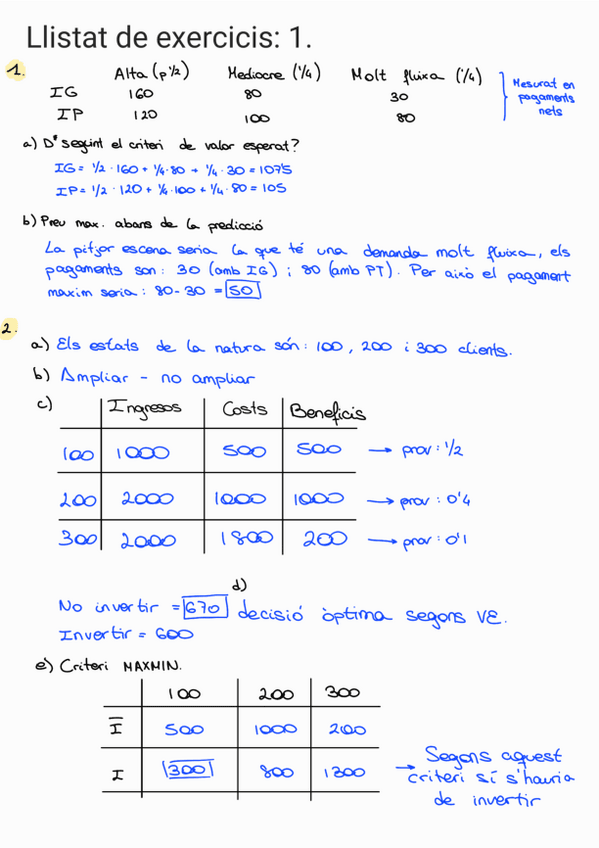 Llistat de exercicis: 1.
1.
Alta (p 1/2) Mediocre (1/4) Molt fluixa (1/4)
IG 160 80 30
IP 120 100 80
Mesurat en
pagaments
nets
a) Dº seguint el criteri de valor esperat?
IG = 1/2 · 160 + 1/4 · 80 + 1/4 · 30 = 107'5
IP = 1/2 · 120 + 1/4 · 100 + 1/4 · 80 = 105
b) Preu max. abans de la predicció
La pitjor escena seria la que té una demanda molt fluixa, els
pagaments son: 30 (amb IG) i 80 (amb PT). Per això el pagament
maxim seria: 80 - 30 = 50
2.
a) Els estats de la natura són: 100, 200 i 300 clients.
b) Ampliar - no ampliar
c)
Ingresos Costs Beneficis
100 1000 500 500 → prov: 1/2
200 2000 1000 1000 → prov: 0'4
300 2000 1800 200 → prov: 0'1
d)
No invertir = 670 decisió òptima segons VE.
Invertir = 600
e) Criteri MAXMIN.
100 200 300
I̅ 500 1000 200
I 300 800 1300
→ Segons aquest
criteri sí s'hauria
de invertir